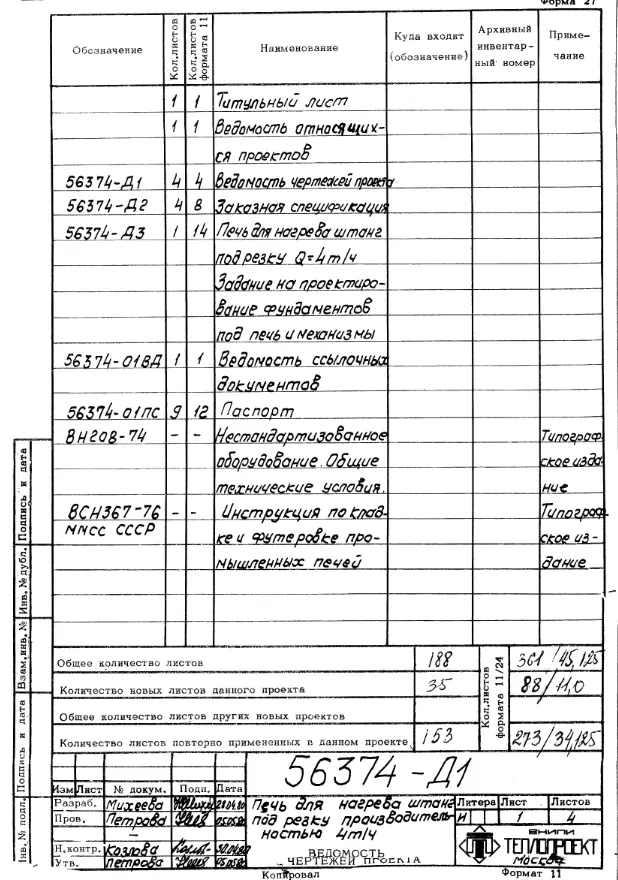 Форма 27
Обозначение | Кол.листов | Кол.листов формата 11 | Наименование | Куда входит (обозначение) | Архивный инвентар- ный номер | Приме- чание
1 1 Титульный лист
1 1 Ведомость относящих-
ся проектов
56374-Д1 4 4 Ведомость чертежей проекта
56374-Д2 4 8 Заказная спецификация
56374-Д3 1 14 Печь для нагрева штанг
под резку Q=4т/ч
Задание на проектиро-
вание фундаментов
под печь и механизмы
56374-01ВД 1 1 Ведомость ссылочных
документов
56374-01ПС 9 12 Паспорт
ВН208-74 - - Нестандартизованное Типограф
оборудование. Общие ское изда
технические условия. ние
ВСН367-76 - - Инструкция по клад- Типограф-
ММСС СССР ке и футеровке про- ское из-
мышленных печей дание
Общее количество листов 188 361/45,125
Количество новых листов данного проекта 35 88/11,0
Общее количество листов других новых проектов
Количество листов повторно примененных в данном проекте 153 273/34,125
Кол.листов формата 11/24
Инв.№ подл. Подпись и дата Взам.инв.№ Инв.№ дубл. Подпись и дата
56374-Д1
Изм Лист № докум. Подп. Дата
Разраб. Михеева 28.04.80
Пров. Петрова 05.05.80
Н.контр. Козлова 30.04.80
Утв. Петрова 05.05.80
Печь для нагрева штанг
под резку производитель-
ностью 4т/ч
ВЕДОМОСТЬ
ЧЕРТЕЖЕЙ ПРОЕКТА
Литера Лист Листов
И 1 4
ВНИПИ
ТЕПЛОПРОЕКТ
Москва
Копировал Формат 11